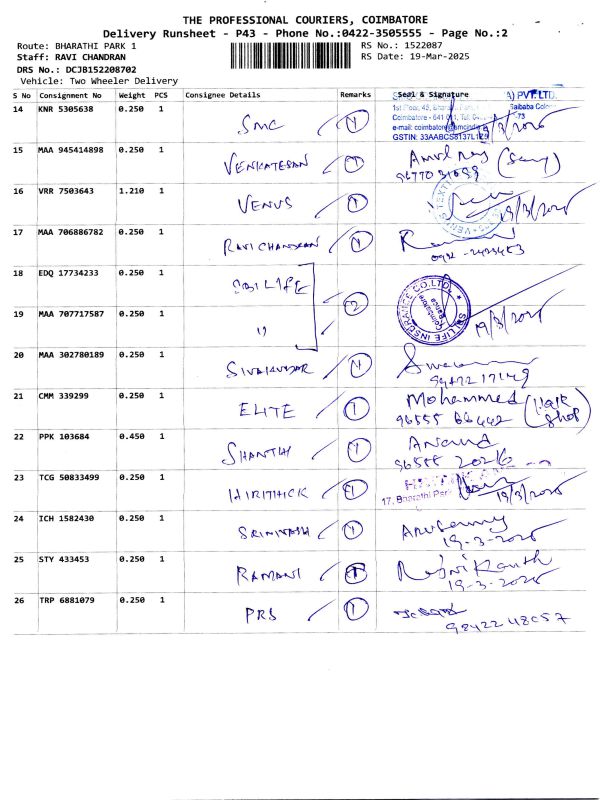 THE PROFESSIONAL COURIERS, COIMBATORE
Delivery Runsheet - P43 - Phone No.:0422-3505555 - Page No.:2
Route: BHARATHI PARK 1 RS No.: 1522087
Staff: RAVI CHANDRAN RS Date: 19-Mar-2025
DRS No.: DCJB152208702
Vehicle: Two Wheeler Delivery
S No Consignment No Weight PCS Consignee Details Remarks Seal & Signature
14 KNR 5305638 0.250 1 SMC 1 A) PVT.LTD.
1st Floor, 43, Saibaba Colony
Coimbatore - 641 011
e-mail: coimbatore
GSTIN: 33AABCS 19/3/2025
15 MAA 945414898 0.250 1 VENKATESAN 1
16 VRR 7503643 1.210 1 VENUS 1 19/3/2025
17 MAA 706886782 0.250 1 RAVICHANDRAN 1
18 EDQ 17734233 0.250 1 SBI LIFE 2 SBI LIFE INSURANCE CO.LTD. Coimbatore
19 MAA 707717587 0.250 1 " 19/3/2025
20 MAA 302780189 0.250 1 SIVAKUMAR 1
21 CMM 339299 0.250 1 ELITE 1 Mohammed
96555 66442
22 PPK 103684 0.450 1 SHANTHI 1 Anand
23 TCG 50833499 0.250 1 HIRITHICK 1
17, Bharathi Park 19/3/2025
24 ICH 1582430 0.250 1 SRINIVASH 1
19-3-2025
25 STY 433453 0.250 1 RAMANI 1 Rajnikanth
19-3-2025
26 TRP 6881079 0.250 1 PRS 1
98422 48057